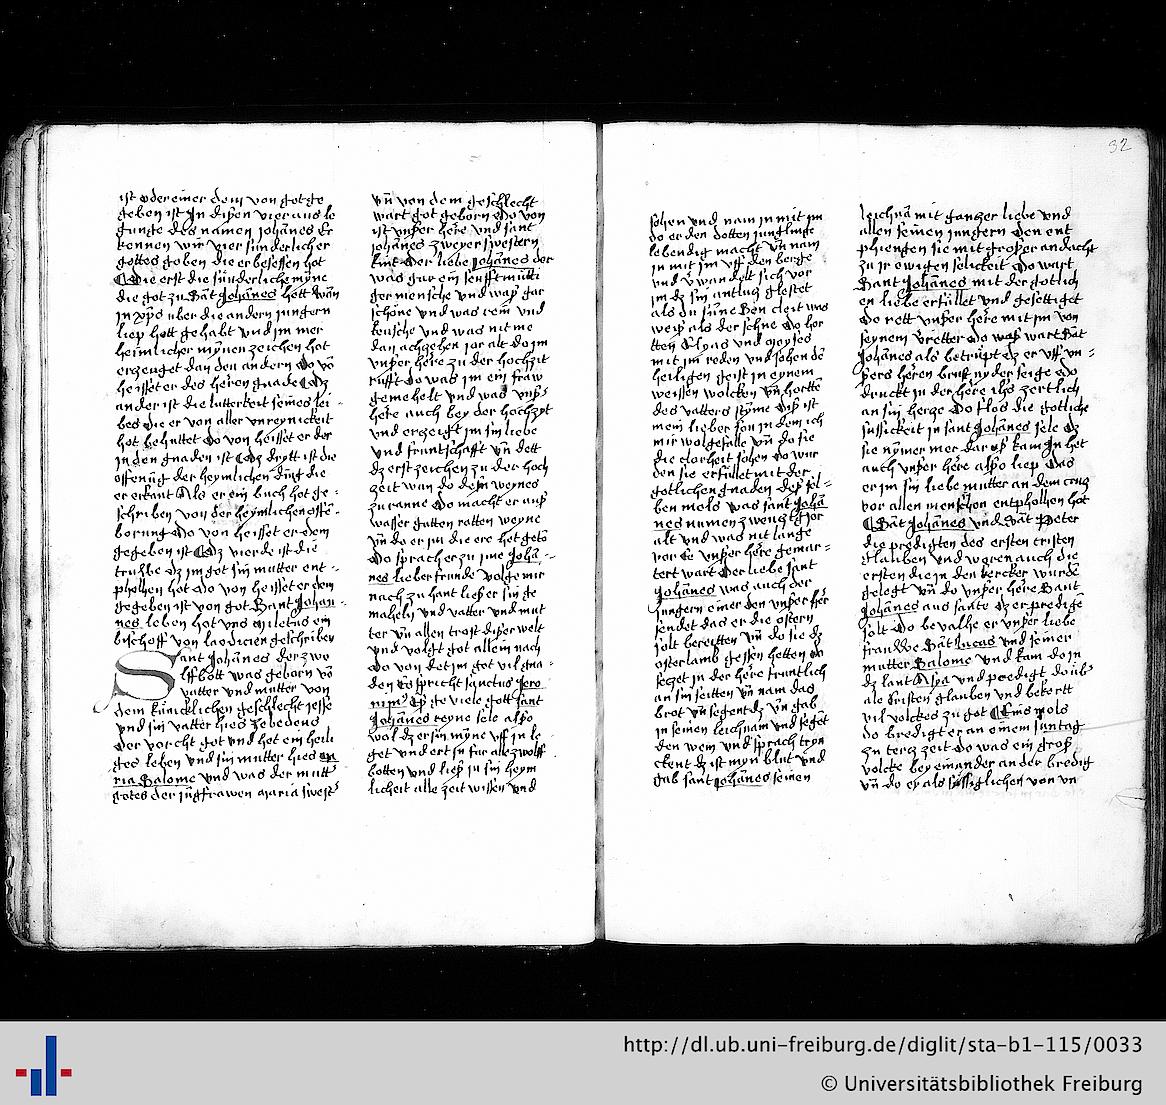 ist oder einer dem von got ge
geben ist In disen vier aus le
gunge des namen Johānes Er
kennen wir vier sunderlicher
gottes goben die er besessen hot
Die erst die sunderliche myne
die got zu Sāt Johānes hott wān
jn xp̄s uber die andern jungern
liep hott gehabt und im mer
heimlicher mynen zeichen hot
erzeuget dan den andern Do vō
heisset er des heren gnade Dz
ander ist die lutterkeit seines lei
bes die er von aller unreynickeit
hot behuttet Do von heisset er der
in den gnaden ist Dz drytt ist die
offenūg der heymlichen ding die
er erkant Als er ein buch hot ge
schriben von der heymlichen offē
borung Do von heisset er dem
gegeben ist Dz vierde ist die
truhbe dz im got sin mutter ent
pholhen hot Do von heisset er dem
gegeben ist von got Sant Johan
nes leben hot uns Miletus ein
bischoff von laodicien geschriben
Sant Johānes der zwe
lffbott was geborn vō
vatter und mutter von
dem kūnicklichen geschlecht jesse
und sin vatter hies zebedeus
der vorcht got und het ein heili
ges leben und sin mutter hies ma
ria Salome und was der mutt
gotes der jūgfrawen maria swest
vn̄ von dem geschlecht
wart got geborn Do von
ist unser here und sant
Johānes zweyer swestern
kint Der liebe Johānes der
was gar ein senfftmutti
ger mensche und was gar
schone und was rein und
keusche und was nit me
dan achzehen jor alt do im
unser here zu der hochzit
rufft Do was im ein fraw
gemehelt und was unser
here auch bey der hochzyt
und erzeigt im sin liebe
und fruntschafft vn̄ dett
dz erst zeichen zu der hoch
zeit wan do dem weynes
zu ranne Do macht er aus
wasser gutten rotten weyne
vn̄ do er im die ere het getō
Do sprach er zu jme Johā
nes lieber frunde volge mir
nach zu hant lies er sin ge
maheln und vatter und mut
ter vn̄ allen trost diser welt
und volgt got allein nach
Do von det im got vil gna
den Es spricht sanctus Jero
nim9 So ge viele gott sant
Johānes reyne sele also
wol dz er sin myne uff in le
get und ert in fur alle zwolff
botten und lies in sin heym
licheit alle zeit wissen und
sehen und nam in mit im
do er den dotten jungling
lebendig macht vn̄ nam
jn mit im uff den berge
und v̄wandelt sich vor
im dz sin antlutz glestet
als du sūne Sen cleit was
weis als der schne Do her
tten Elyas und Moyses
mit im reden und sehen dē
heiligen geist in eynem
weissen wolcken vn̄ hortē
des vatters styme Dis ist
mein lieber son in dem ich
mir wolgefalle vn̄ do sie
die clorheit sohen do wur
den sie erfullet mit der
gotlichen gnaden des sel
ben mols was sant Johā
nes numen zwenzig jor
alt und was nit lange
vor Ee unser here gemar
tert wart Der liebe sant
Johānes was auch der
jungern einer den unser her
sendet das er die ostern
solt beretten vn̄ do sie dz
osterlamb gessen hetten do
seczet in der here fruntlich
an sin seitten vn̄ nam das
brot vn̄ segent dz vn̄ gab
in seinen leichnam und seget
den wein und sprach tryn
ckent dz ist myn blut und
gab sant Johānes seinen
leichnā mit ganzer liebe und
allen seinen jungern den ent
phiengen sie mit groser andacht
zu ir ewigen selickeit Do wart
Sant Johānes mit der gotlich
en liebe erfullet und gesettiget
Do rett unser here mit im von
seynem v̄retter do was wart Sāt
Johānes als betrupt dz er uff un
sers heren brust nyder seige do
druckt in der here ih̄s zertlich
an sin herze Do flos die gotliche
sussickeit in sant Johānes sele dz
sie nymer mer dar us kam In het
auch unser here also liep das
er im sin liebe mutter an dem cruz
vor allen menschen entpholhen hot
Sāt Johānes und Sāt Peter
die predigten des ersten cristen
glauben und woren auch die
ersten die in den kercker wurdē
gelegt vn̄ do unser here Sant
Johānes aus sante dz er predigē
solt Do bevalhe er unser liebe
frauwe Sāt Lucas und seiner
mutter Salome und kam do in
dz lant Asya und prediget do ub
ale Cristen glauben und bekertt
vil volckes zu got Eins mols
do bredigt er an einem suntag
zu terz zeit do was ein gros
volcke bey einander an der bredig
vn̄ do ey als sussiglichen von un
32
http://dl.ub.uni-freiburg.de/diglit/sta-b1-115/0033
© Universitätsbibliothek Freiburg